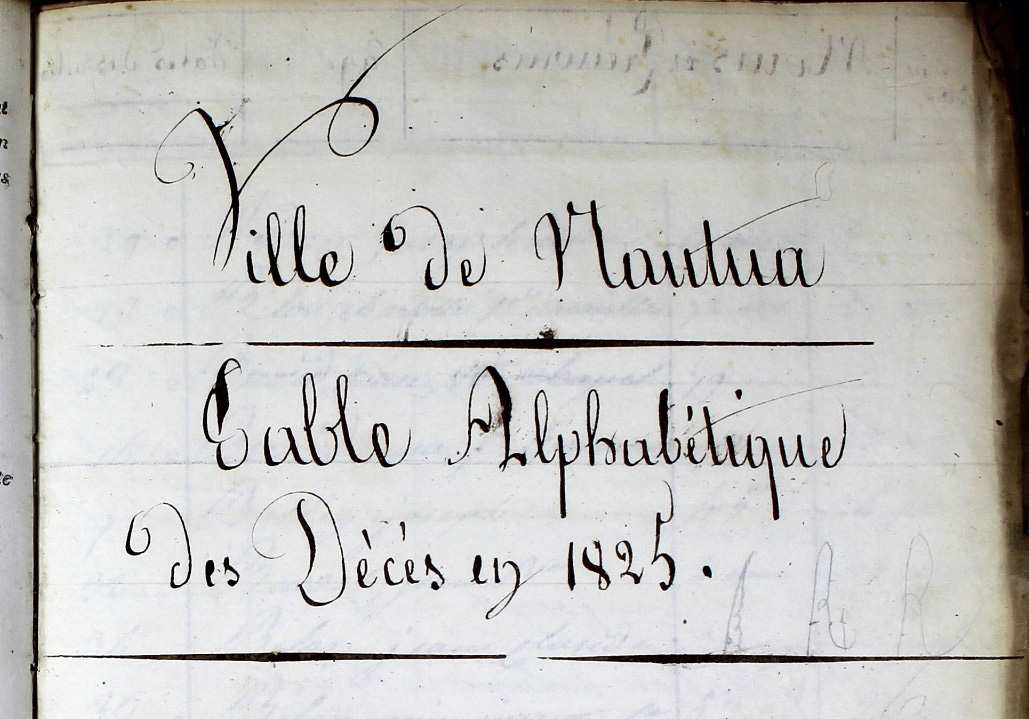 Ville de Nantua
Table Alphabétique
des Décès en 1825.